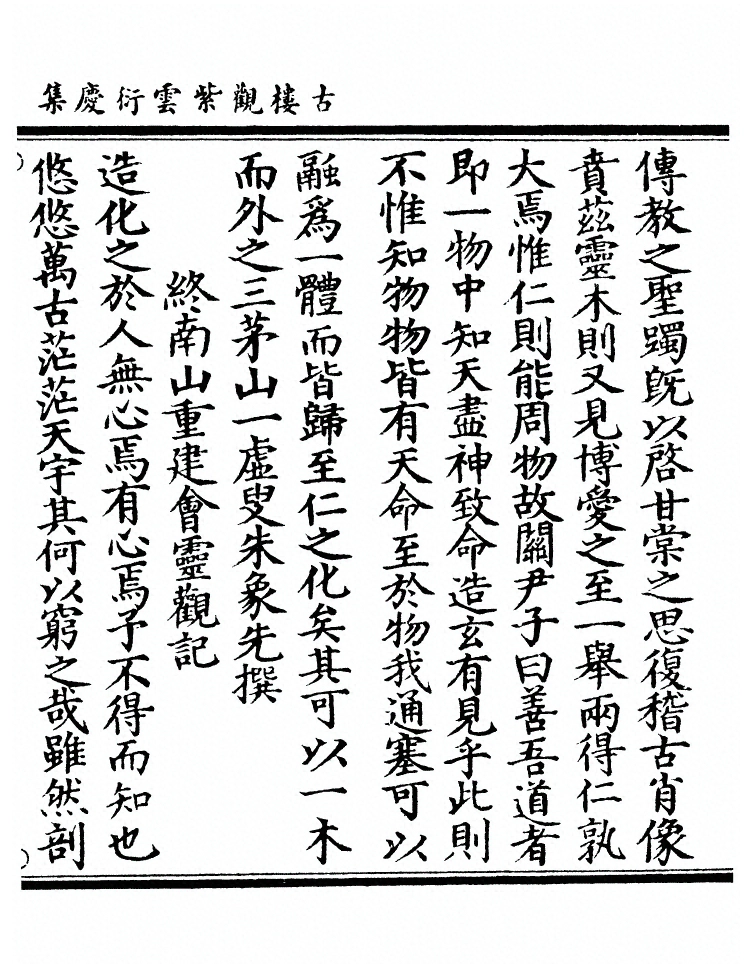 古樓觀紫雲衍慶集
傳教之聖躅旣以啓甘棠之思復稽古肖像
賁茲靈木則又見博愛之至一舉兩得仁孰
大焉惟仁則能周物故關尹子曰善吾道者
即一物中知天盡神致命造玄有見乎此則
不惟知物物皆有天命至於物我通塞可以
融爲一體而皆歸至仁之化矣其可以一木
而外之三茅山一虛叟朱象先撰
終南山重建會靈觀記
造化之於人無心焉有心焉予不得而知也
悠悠萬古茫茫天宇其何以窮之哉雖然剖